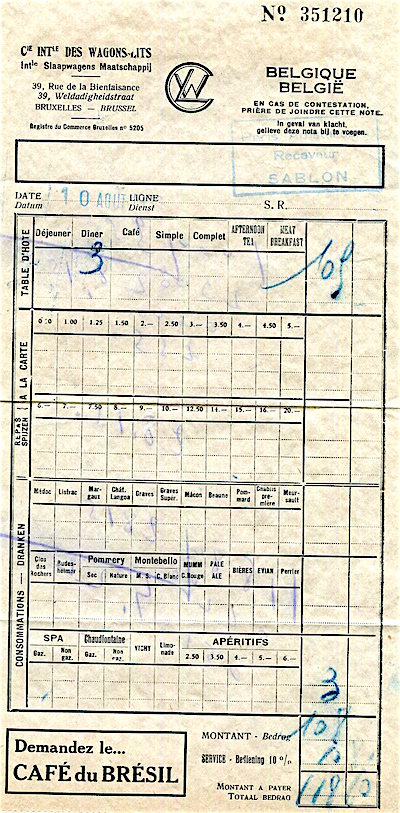 Nº 351210
Cie INTle DES WAGONS-LITS
Intle Slaapwagens Maatschappij
39, Rue de la Bienfaisance
39, Weldadigheidstraat
BRUXELLES — BRUSSEL
Registre du Commerce Bruxelles nº 5205
WL
BELGIQUE
BELGIË
EN CAS DE CONTESTATION,
PRIÈRE DE JOINDRE CETTE NOTE.
In geval van klacht,
gelieve deze nota bij te voegen.
Receveur
SABLON
DATE 10 AOUT LIGNE
Datum Dienst S. R.
TABLE D'HOTE
Déjeuner Dîner Café Simple Complet AFTERNOON TEA MEAT BREAKFAST
3 105
A LA CARTE
1.00 1.25 1.50 2.— 2.50 3.— 3.50 4.— 4.50 5.—
REPAS
SPIJZEN
6.— 7.— 7.50 8.— 9.— 10.— 12.50 14.— 15.— 16.— 20.—
CONSOMMATIONS — DRANKEN
Médoc Listrac Margaux Chât. Langoa Graves Graves Super. Mâcon Beaune Pommard Chablis première Meursault
Clos des Rochers Rudesheimer Pommery Sec Nature Montebello M. S. C. Blanc MUMM C. Rouge PALE ALE BIÈRES EVIAN Perrier
SPA Chaudfontaine VICHY Limonade APÉRITIFS
Gaz. Non gaz. Gaz. Non gaz. 2.50 3.50 4.— 5.— 6.—
3
Demandez le...
CAFÉ du BRÉSIL
MONTANT - Bedrag 108
SERVICE - Bediening 10 %
MONTANT A PAYER
TOTAAL BEDRAG